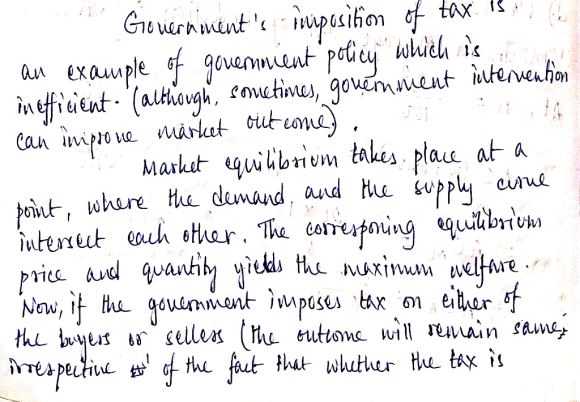 Government's imposition of tax is
an example of government policy which is
inefficient. (although, sometimes, government intervention
can improve market outcome).
Market equilibrium takes place at a
point, where the demand, and the supply curve
intersect each other. The corresponing equilibrium
price and quantity yields the maximum welfare.
Now, if the government imposes tax on either of
the buyers or sellers (the outcome will remain same,
irrespective of the fact that whether the tax is